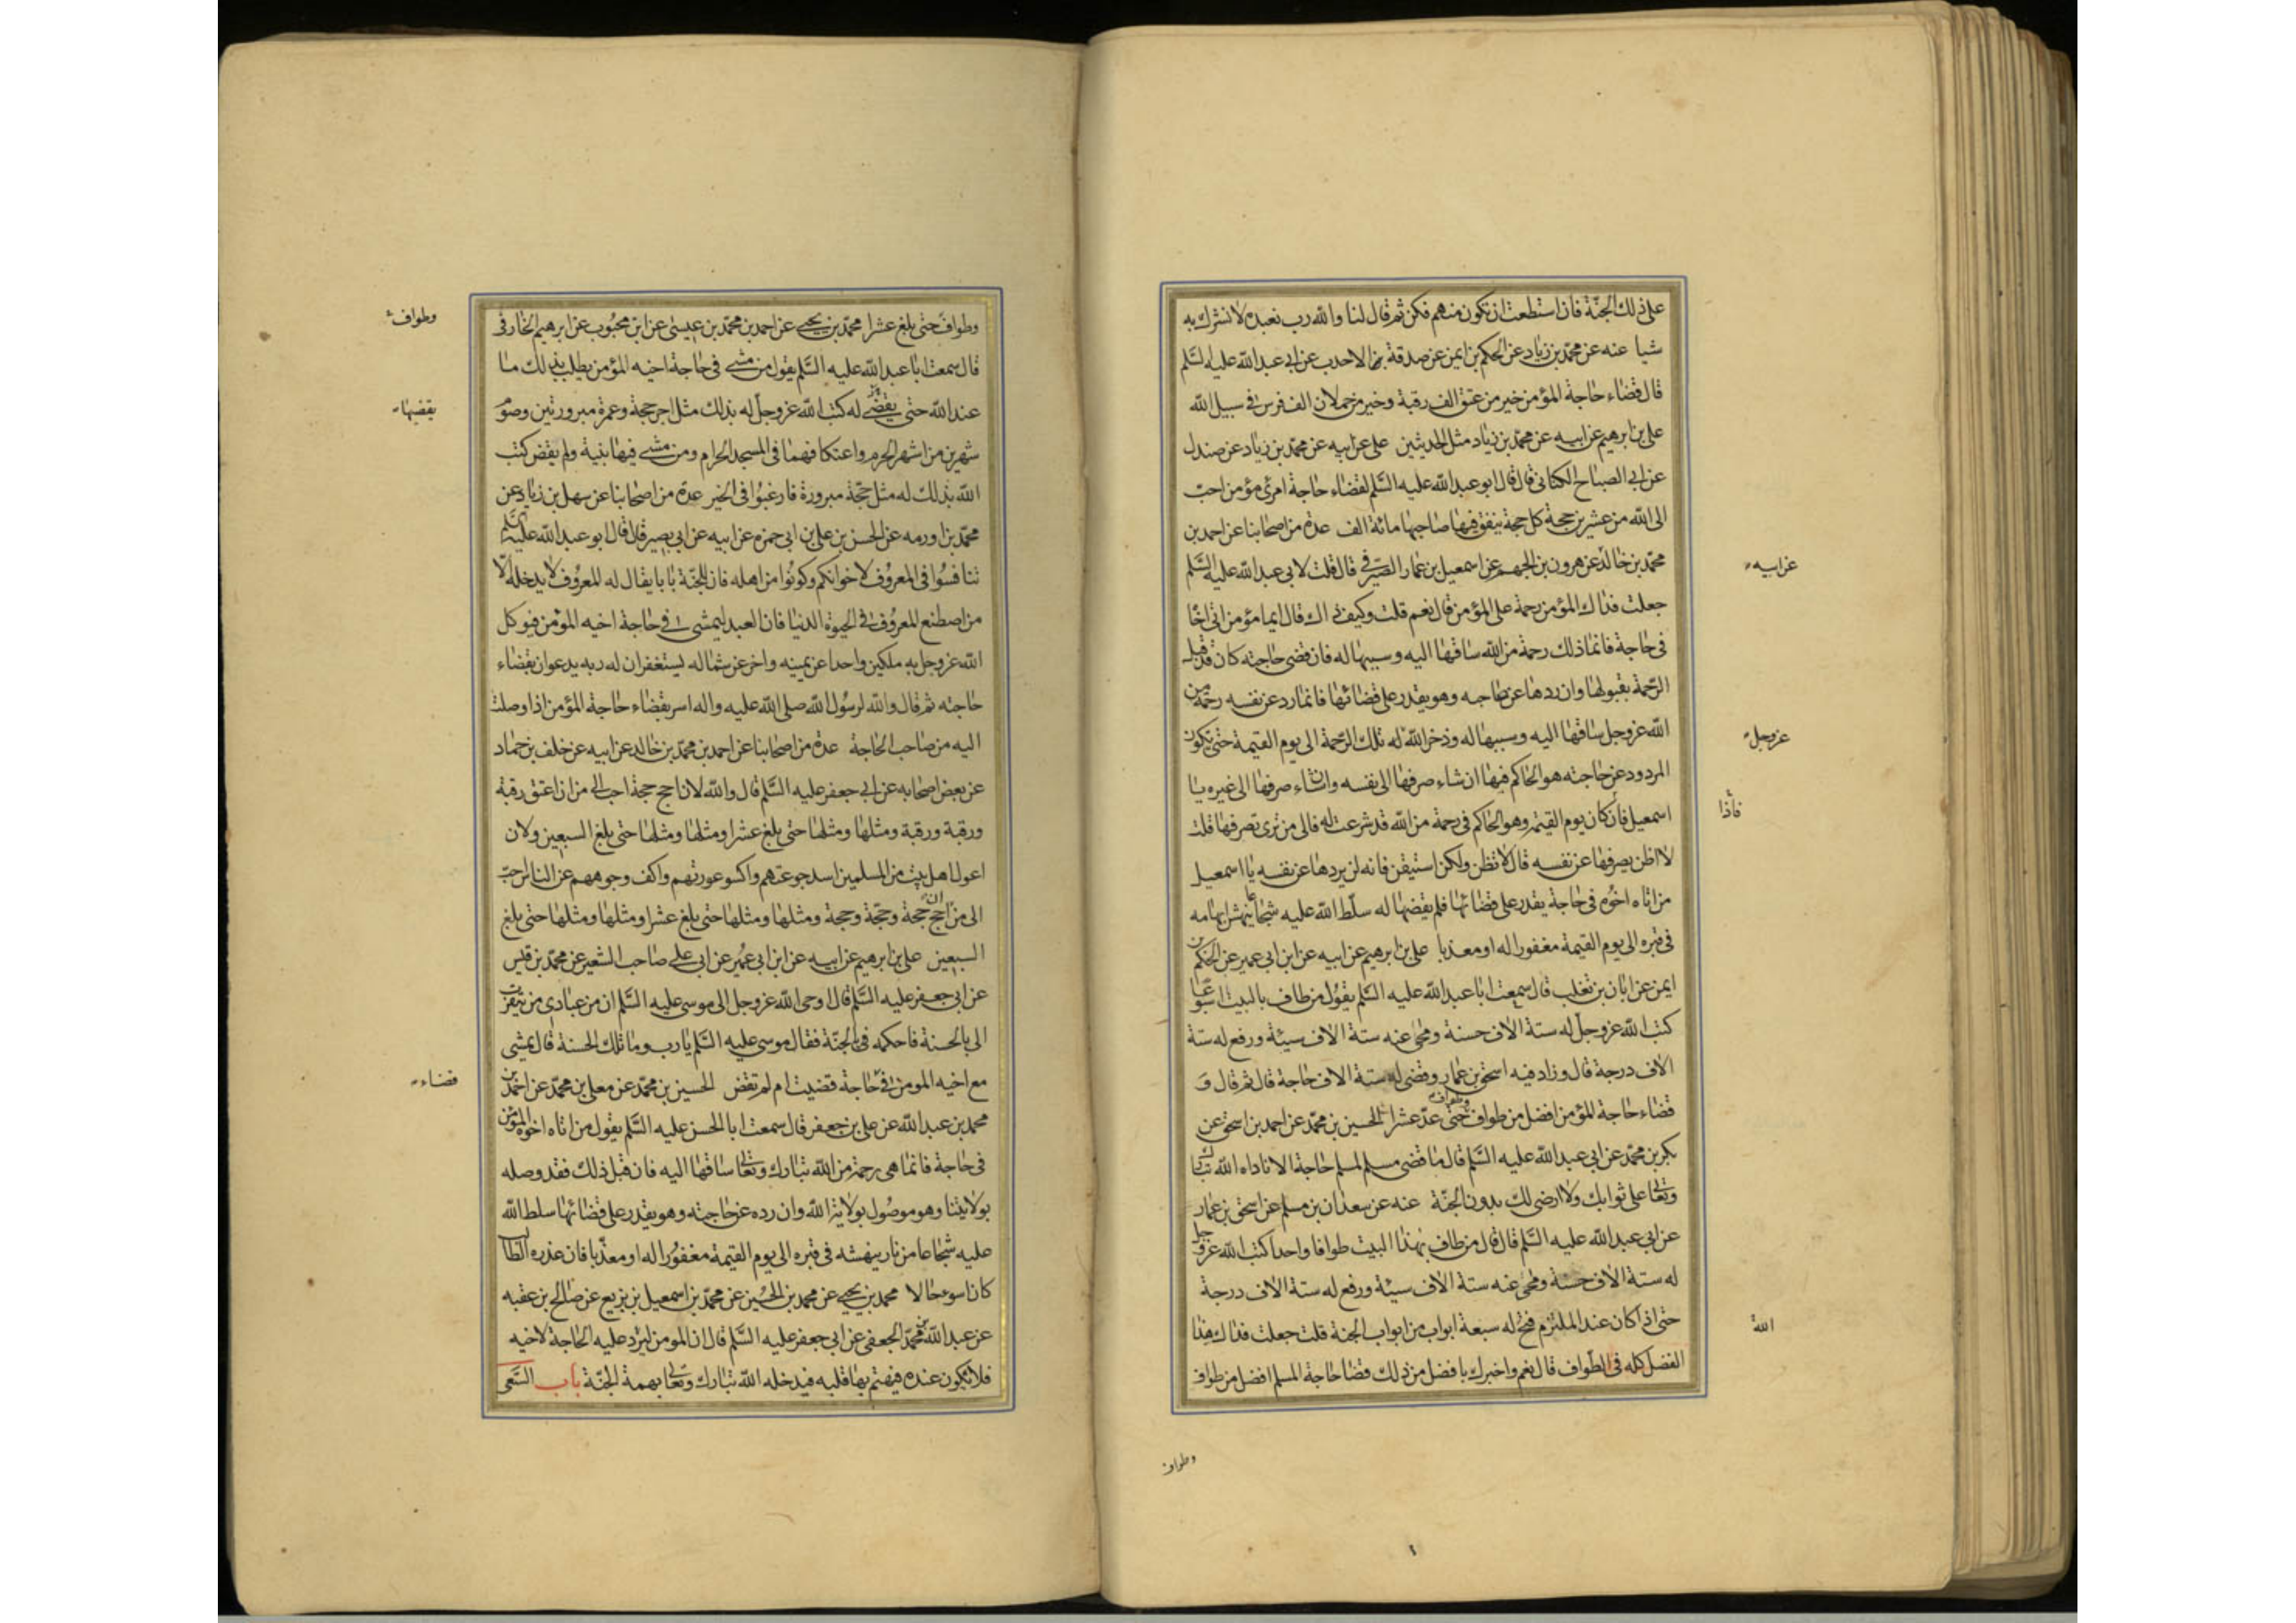 على ذلك الجنة فان استطعت ان تكون منهم فكن ثم قال لنا والله رب نعبده لا نشرك به
شيا عنه عن محمد بن زياد عن الحكم بن ايمن عن صدقة الاحدب عن ابى عبد الله عليه السلم
قال قضاء حاجة المؤمن خير من عتق الف رقبة وخير من حملان الف فرس فى سبيل الله
على بن ابرهيم عن ابيه عن محمد بن زياد مثل الحديثين على عن ابيه عن محمد بن زياد عن صندل
عن ابى الصباح الكنانى قال قال ابو عبد الله عليه السلم لقضاء حاجة امرئ مؤمن احب
الى الله من عشرين حجة كل حجة ينفق فيها صاحبها مائة الف عدة من اصحابنا عن احمد بن
محمد بن خالد عن هرون بن الجهم عن اسمعيل بن عمار الصيرفى قال قلت لابى عبد الله عليه السلم
عن ابيه
جعلت فداك المؤمن رحمة على المؤمن قال نعم قلت وكيف ذاك قال ايما مؤمن اتى اخا
فى حاجة فانما ذلك رحمة من الله ساقها اليه وسببها له فان قضى حاجته كان قد قبل
الرحمة بقبولها وان ردها عن حاجبه وهو يقدر على قضائها فانما رد عن نفسه رحمة من
الله عز وجل ساقها اليه وسببها له وذخر الله له تلك الرحمة الى يوم القيمة حتى تكون
عز وجل
المردود عن حاجته هو الحاكم فيها ان شاء صرفها الى نفسه وان شاء صرفها الى غيره يا
اسمعيل فان كان يوم القيمة وهو الحاكم فى رحمة من الله قد شرعت له فالى من ترى تصرفها قلت
فاذا
لا اظن يصرفها عن نفسه قال لا تظن ولكن استيقن فانه لن يردها عن نفسه يا اسمعيل
من اتاه اخوه فى حاجة يقدر على قضائها فلم يقضها له سلط الله عليه شجاعا ينهش ابهامه
فى قبره الى يوم القيمة مغفورا له او معذبا على بن ابرهيم عن ابيه عن ابن ابى عمير عن الحكم بن
ايمن عن ابان بن تغلب قال سمعت ابا عبد الله عليه السلم يقول من طاف بالبيت اسبوعا
كتب الله عز وجل له ستة الاف حسنة ومحى عنه ستة الاف سيئة ورفع له ستة
الاف درجة قال وزاد فيه اسحق بن عمار وقضى له ستة الاف حاجة قال ثم قال و
قضاء حاجة المؤمن افضل من طواف وطواف حتى عد عشرا الحسين بن محمد عن احمد بن اسحق عن
بكر بن محمد عن ابى عبد الله عليه السلم قال ما قضى مسلم لمسلم حاجة الا ناداه الله تبارك
وتعالى على ثوابك ولا ارضى لك بدون الجنة عنه عن سعدان بن مسلم عن اسحق بن عمار
عن ابى عبد الله عليه السلم قال قال من طاف بهذا البيت طوافا واحدا كتب الله عز وجل
له ستة الاف حسنة ومحى عنه ستة الاف سيئة ورفع له ستة الاف درجة
حتى اذا كان عند الملتزم فتح له سبعة ابواب من ابواب الجنة قلت جعلت فداك هذا
الله
الفضل كله فى الطواف قال نعم واخبرك بافضل من ذلك قضا حاجة المسلم افضل من طواف
وطواف
وطواف حتى بلغ عشرا محمد بن يحيى عن احمد بن محمد بن عيسى عن ابن محبوب عن ابرهيم الخارقى
وطواف
قال سمعت ابا عبد الله عليه السلم يقول من مشى فى حاجة اخيه المؤمن يطلب بذلك ما
عند الله حتى يقضى له كتب الله عز وجل له بذلك مثل اجر حجة وعمرة مبرورتين وصوم
يقضيها
شهرين من اشهر الحرم واعتكافهما فى المسجد الحرام ومن مشى فيها بنية ولم يقض كتب
الله بذلك له مثل حجة مبرورة فارغبوا فى الخير عدة من اصحابنا عن سهل بن زياد عن
محمد بن اورمه عن الحسن بن على بن ابى حمزه عن ابيه عن ابى بصير قال قال ابو عبد الله عليه السلم
تنافسوا فى المعروف لاخوانكم وكونوا من اهله فان للجنة بابا يقال له المعروف لا يدخله الا
من اصطنع المعروف فى الحيوة الدنيا فان العبد ليمشى فى حاجة اخيه المؤمن فيوكل
الله عز وجل به ملكين واحدا عن يمينه واخر عن شماله يستغفران له ربه يدعوان بقضاء
حاجته ثم قال والله لرسول الله صلى الله عليه واله اسر بقضاء حاجة المؤمن اذا وصلت
اليه من صاحب الحاجة عدة من اصحابنا عن احمد بن محمد بن خالد عن ابيه عن خلف بن حماد
عن بعض اصحابه عن ابى جعفر عليه السلم قال والله لان احج حجة احب الى من ان اعتق رقبة
ورقبة ورقبة ومثلها ومثلها حتى بلغ عشرا ومثلها ومثلها حتى بلغ السبعين ولان
اعول اهل بيت من المسلمين اسد جوعتهم واكسو عورتهم واكف وجوههم عن الناس احب
الى من ان احج حجة وحجة وحجة ومثلها ومثلها حتى بلغ عشرا ومثلها ومثلها حتى بلغ
السبعين على بن ابرهيم عن ابيه عن ابن ابى عمير عن ابى على صاحب الشعير عن محمد بن قيس
عن ابى جعفر عليه السلم قال اوحى الله عز وجل الى موسى عليه السلم ان من عبادى من يتقرب
الى بالحسنة فاحكمه فى الجنة فقال موسى عليه السلم يا رب وما تلك الحسنة قال يمشى
مع اخيه المومن فى حاجة قضيت ام لم تقض الحسين بن محمد عن معلى بن محمد عن احمد بن
قضاء
محمد بن عبد الله عن على بن جعفر قال سمعت ابا الحسن عليه السلم يقول من اتاه اخوه المؤمن
فى حاجة فانما هى رحمة من الله تبارك وتعالى ساقها اليه فان قبل ذلك فقد وصله
بولايتنا وهو موصول بولاية الله وان رده عن حاجته وهو يقدر على قضائها سلط الله
عليه شجاعا من نار ينهشه فى قبره الى يوم القيمة مغفورا له او معذبا فان عذره الطالب
كان اسوء حالا محمد بن يحيى عن محمد بن الحسين عن محمد بن اسمعيل بن بزيع عن صالح بن عقبه
عن عبد الله بن محمد الجعفى عن ابى جعفر عليه السلم قال ان المومن لترد عليه الحاجة لاخيه
فلا تكون عنده فيهتم بها قلبه فيدخله الله تبارك وتعالى بهمه الجنة باب السعى